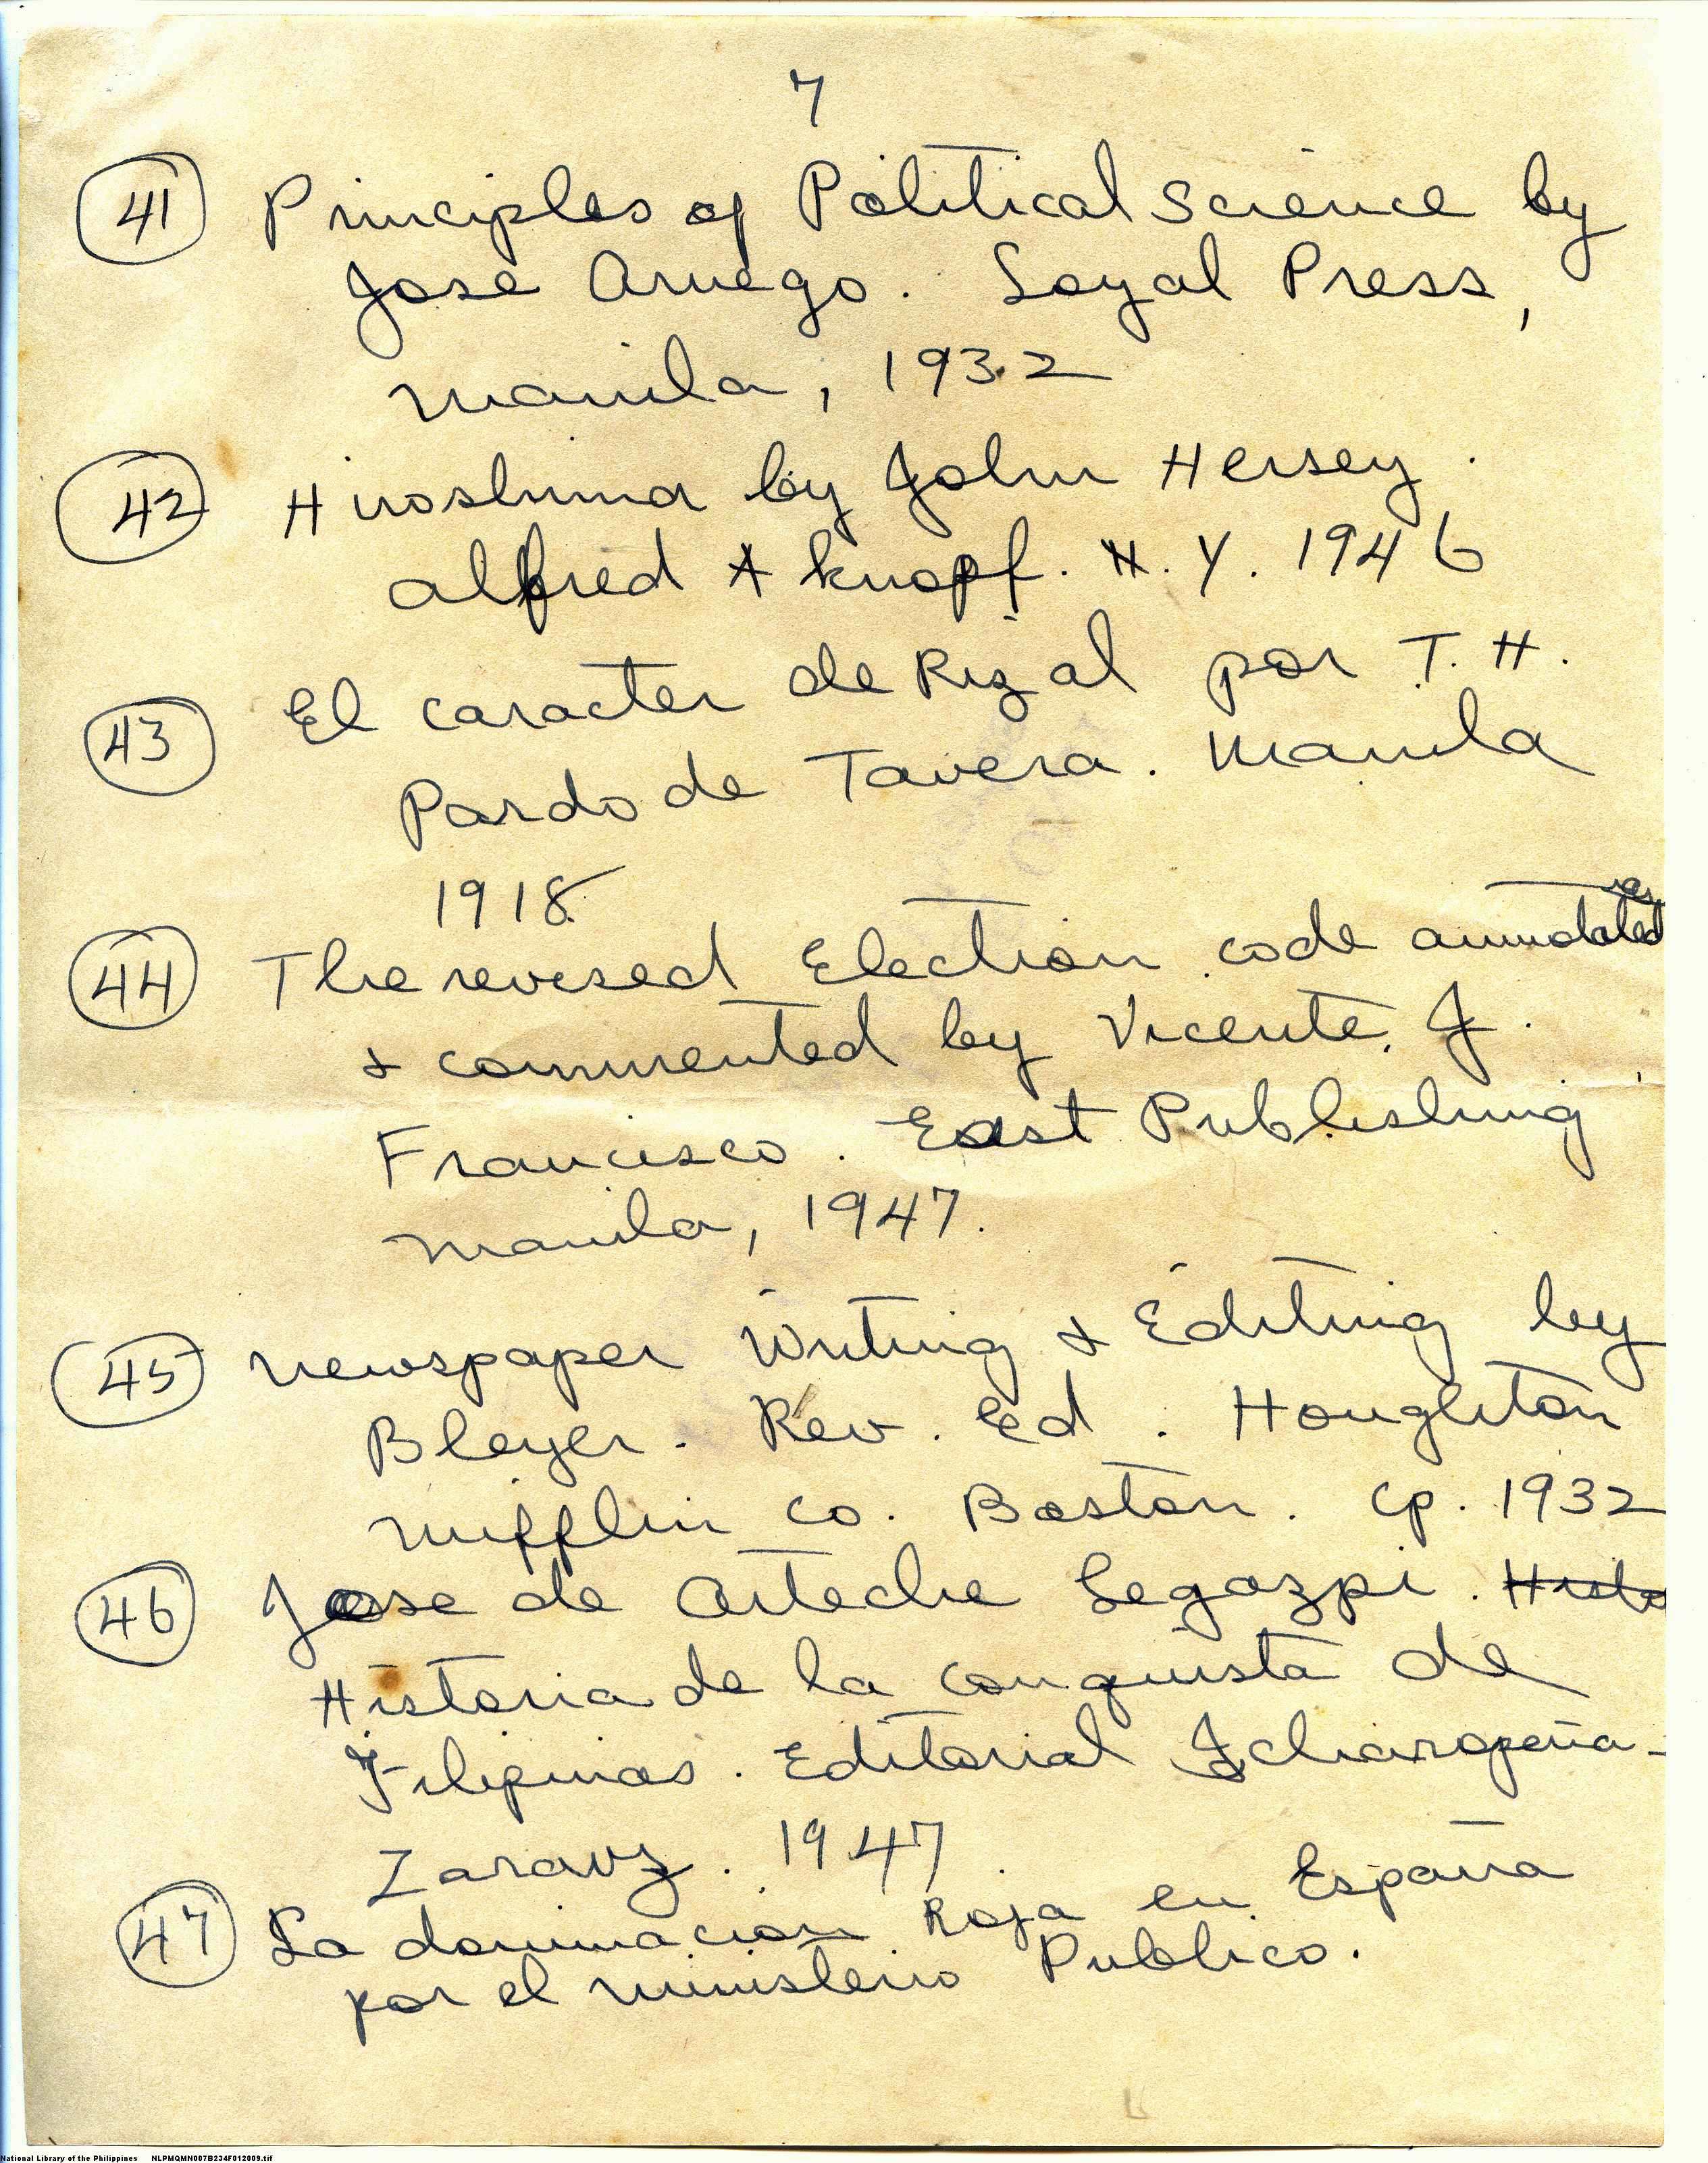 7
41 Principles of Political Science by
Jose Aruego. Loyal Press,
Manila, 1932
42 Hiroshima by John Hersey.
Alfred A Knopf. N. Y. 1946
43 El caracter de Rizal por T. H.
Pardo de Tavera. Manila
1918
44 The revised Election code annotated
& commented by Vicente J.
Francisco. East Publishing
Manila, 1947.
45 Newspaper Writing & Editing by
Bleyer. Rev. Ed. Houghton
Mifflin Co. Boston. Cp. 1932
46 Jose de Arteche Legazpi. Histo
Historia de la conquista de
Filipinas. Editorial Icharopena-
Zarauz. 1947.
47 La dominacion Roja en España
por el ministerio Publico.
National Library of the Philippines NLPMQMN007B234F012009.tif